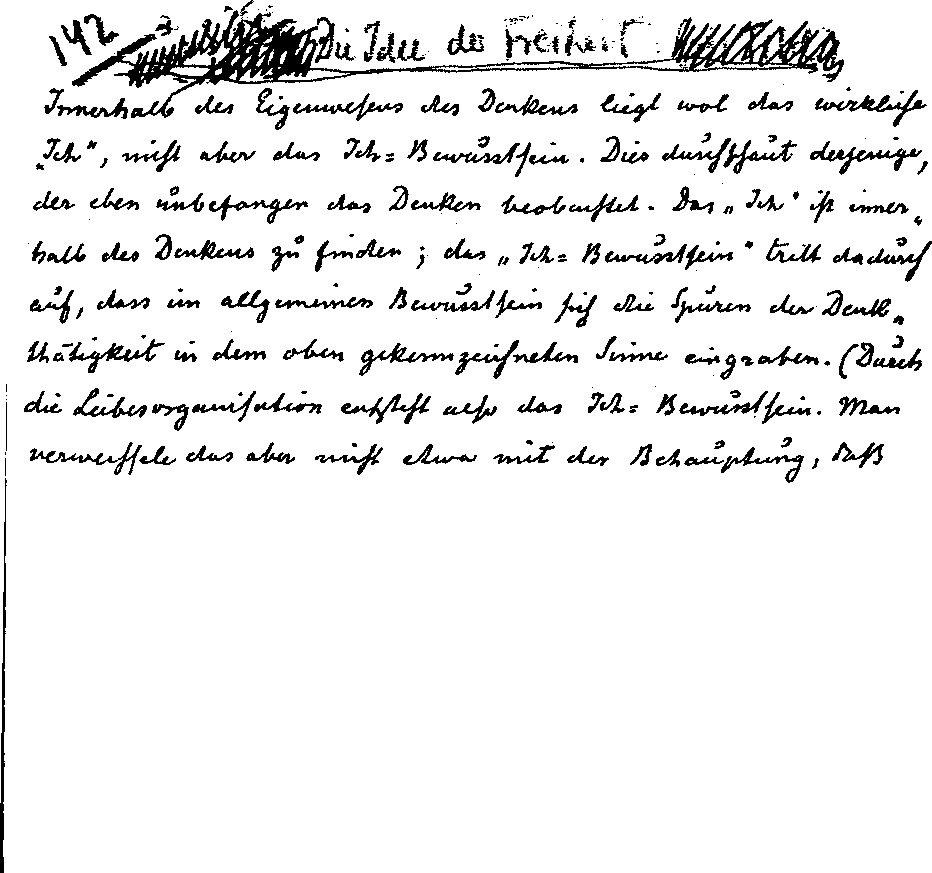 142 Die Idee der Freiheit
Innerhalb des Eigenwesens des Denkens liegt wol das wirkliche
„Ich“, nicht aber das Ich= Bewusstsein. Dies durchschaut derjenige,
der eben unbefangen das Denken beobachtet. Das „Ich“ ist inner„
halb des Denkens zu finden; das „Ich= Bewusstsein“ tritt dadurch
auf, dass im allgemeinen Bewusstsein sich die Spuren der Denk„
thätigkeit in dem oben gekennzeichneten Sinne eingraben. (Durch
die Leibesorganisation entsteht also das Ich= Bewusstsein. Man
verwechsele das aber nicht etwa mit der Behauptung, daß